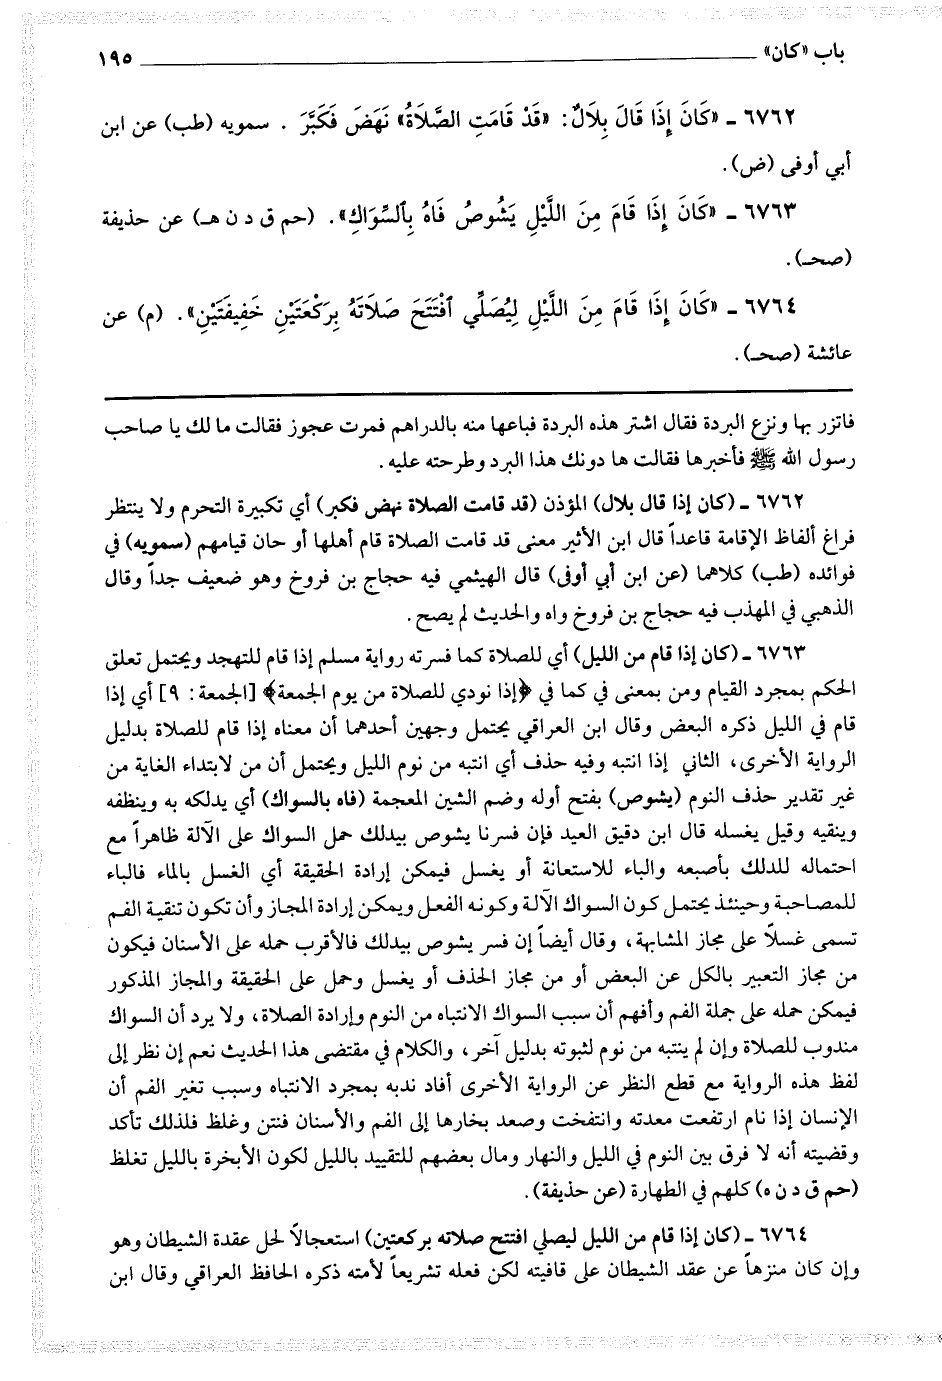 باب «كان» ١٩٥
٦٧٦٢ ـ «كَانَ إِذَا قَالَ بِلَالٌ: «قَدْ قَامَتِ الصَّلَاةُ» نَهَضَ فَكَبَّرَ . سمويه (طب) عن ابن
أبي أوفى (ض).
٦٧٦٣ ـ «كَانَ إِذَا قَامَ مِنَ اللَّيْلِ يَشُوصُ فَاهُ بِٱلسِّوَاكِ». (حم ق د ن هـ) عن حذيفة
(صحـ).
٦٧٦٤ ـ «كَانَ إِذَا قَامَ مِنَ اللَّيْلِ لِيُصَلِّي ٱفْتَتَحَ صَلَاتَهُ بِرَكْعَتَيْنِ خَفِيفَتَيْنِ». (م) عن
عائشة (صحـ).
فاتزر بها ونزع البردة فقال اشتر هذه البردة فباعها منه بالدراهم فمرت عجوز فقالت ما لك يا صاحب
رسول الله ﷺ فأخبرها فقالت ها دونك هذا البرد وطرحته عليه.
٦٧٦٢ ـ (كان إذا قال بلال) المؤذن (قد قامت الصلاة نهض فكبر) أي تكبيرة التحرم ولا ينتظر
فراغ ألفاظ الإقامة قاعداً قال ابن الأثير معنى قد قامت الصلاة قام أهلها أو حان قيامهم (سمويه) في
فوائده (طب) كلاهما (عن ابن أبي أوفى) قال الهيثمي فيه حجاج بن فروخ وهو ضعيف جداً وقال
الذهبي في المهذب فيه حجاج بن فروخ واه والحديث لم يصح.
٦٧٦٣ ـ (كان إذا قام من الليل) أي للصلاة كما فسرته رواية مسلم إذا قام للتهجد ويحتمل تعلق
الحكم بمجرد القيام ومن بمعنى في كما في ﴿إذا نودي للصلاة من يوم الجمعة﴾ [الجمعة: ٩] أي إذا
قام في الليل ذكره البعض وقال ابن العراقي يحتمل وجهين أحدهما أن معناه إذا قام للصلاة بدليل
الرواية الأخرى، الثاني إذا انتبه وفيه حذف أي انتبه من نوم الليل ويحتمل أن من لابتداء الغاية من
غير تقدير حذف النوم (يشوص) بفتح أوله وضم الشين المعجمة (فاه بالسواك) أي يدلكه به وينظفه
وينقيه وقيل يغسله قال ابن دقيق العيد فإن فسرنا يشوص بيدلك حمل السواك على الآلة ظاهراً مع
احتماله للدلك بأصبعه والباء للاستعانة أو يغسل فيمكن إرادة الحقيقة أي الغسل بالماء فالباء
للمصاحبة وحينئذ يحتمل كون السواك الآلة وكونه الفعل ويمكن إرادة المجاز وأن تكون تنقية الفم
تسمى غسلاً على مجاز المشابهة، وقال أيضاً إن فسر يشوص بيدلك فالأقرب حمله على الأسنان فيكون
من مجاز التعبير بالكل عن البعض أو من مجاز الحذف أو يغسل وحمل على الحقيقة والمجاز المذكور
فيمكن حمله على جملة الفم وأفهم أن سبب السواك الانتباه من النوم وإرادة الصلاة، ولا يرد أن السواك
مندوب للصلاة وإن لم ينتبه من نوم لثبوته بدليل آخر، والكلام في مقتضى هذا الحديث نعم إن نظر إلى
لفظ هذه الرواية مع قطع النظر عن الرواية الأخرى أفاد ندبه بمجرد الانتباه وسبب تغير الفم أن
الإنسان إذا نام ارتفعت معدته وانتفخت وصعد بخارها إلى الفم والأسنان فنتن وغلظ فلذلك تأكد
وقضيته أنه لا فرق بين النوم في الليل والنهار ومال بعضهم للتقييد بالليل لكون الأبخرة بالليل تغلظ
(حم ق د ن ه) كلهم في الطهارة (عن حذيفة).
٦٧٦٤ ـ (كان إذا قام من الليل ليصلي افتتح صلاته بركعتين) استعجالاً لحل عقدة الشيطان وهو
وإن كان منزهاً عن عقد الشيطان على قافيته لكن فعله تشريعاً لأمته ذكره الحافظ العراقي وقال ابن